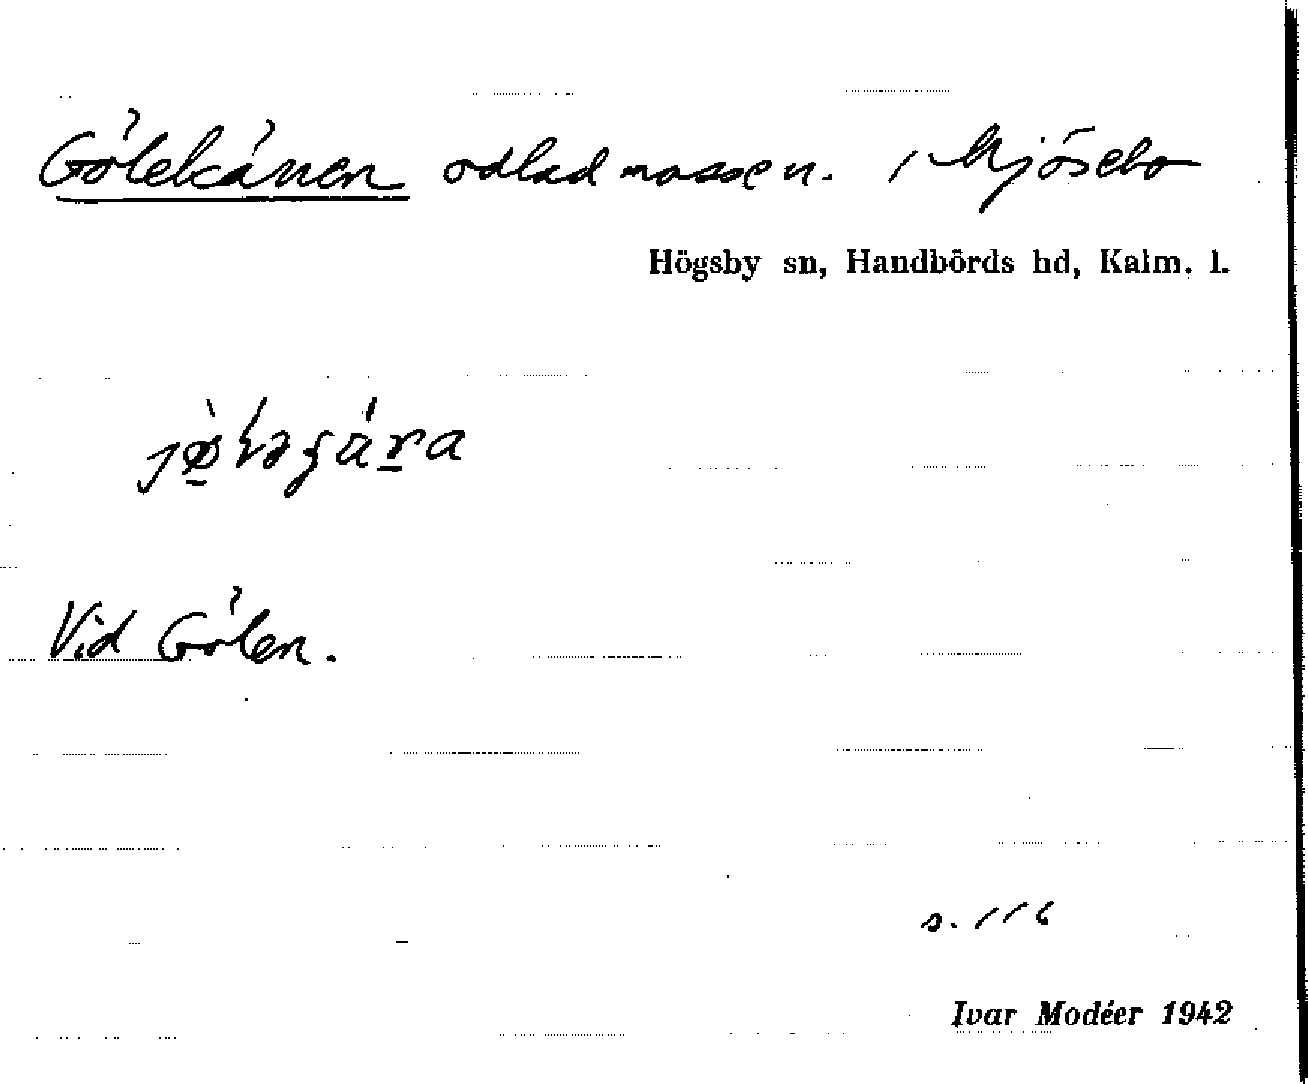 Gölekånen odlad mossen. i Mjösebo
Högsby sn, Handbörds hd, Kalm. l.
Vid Gölen.
s. 116
Ivar Modéer 1942